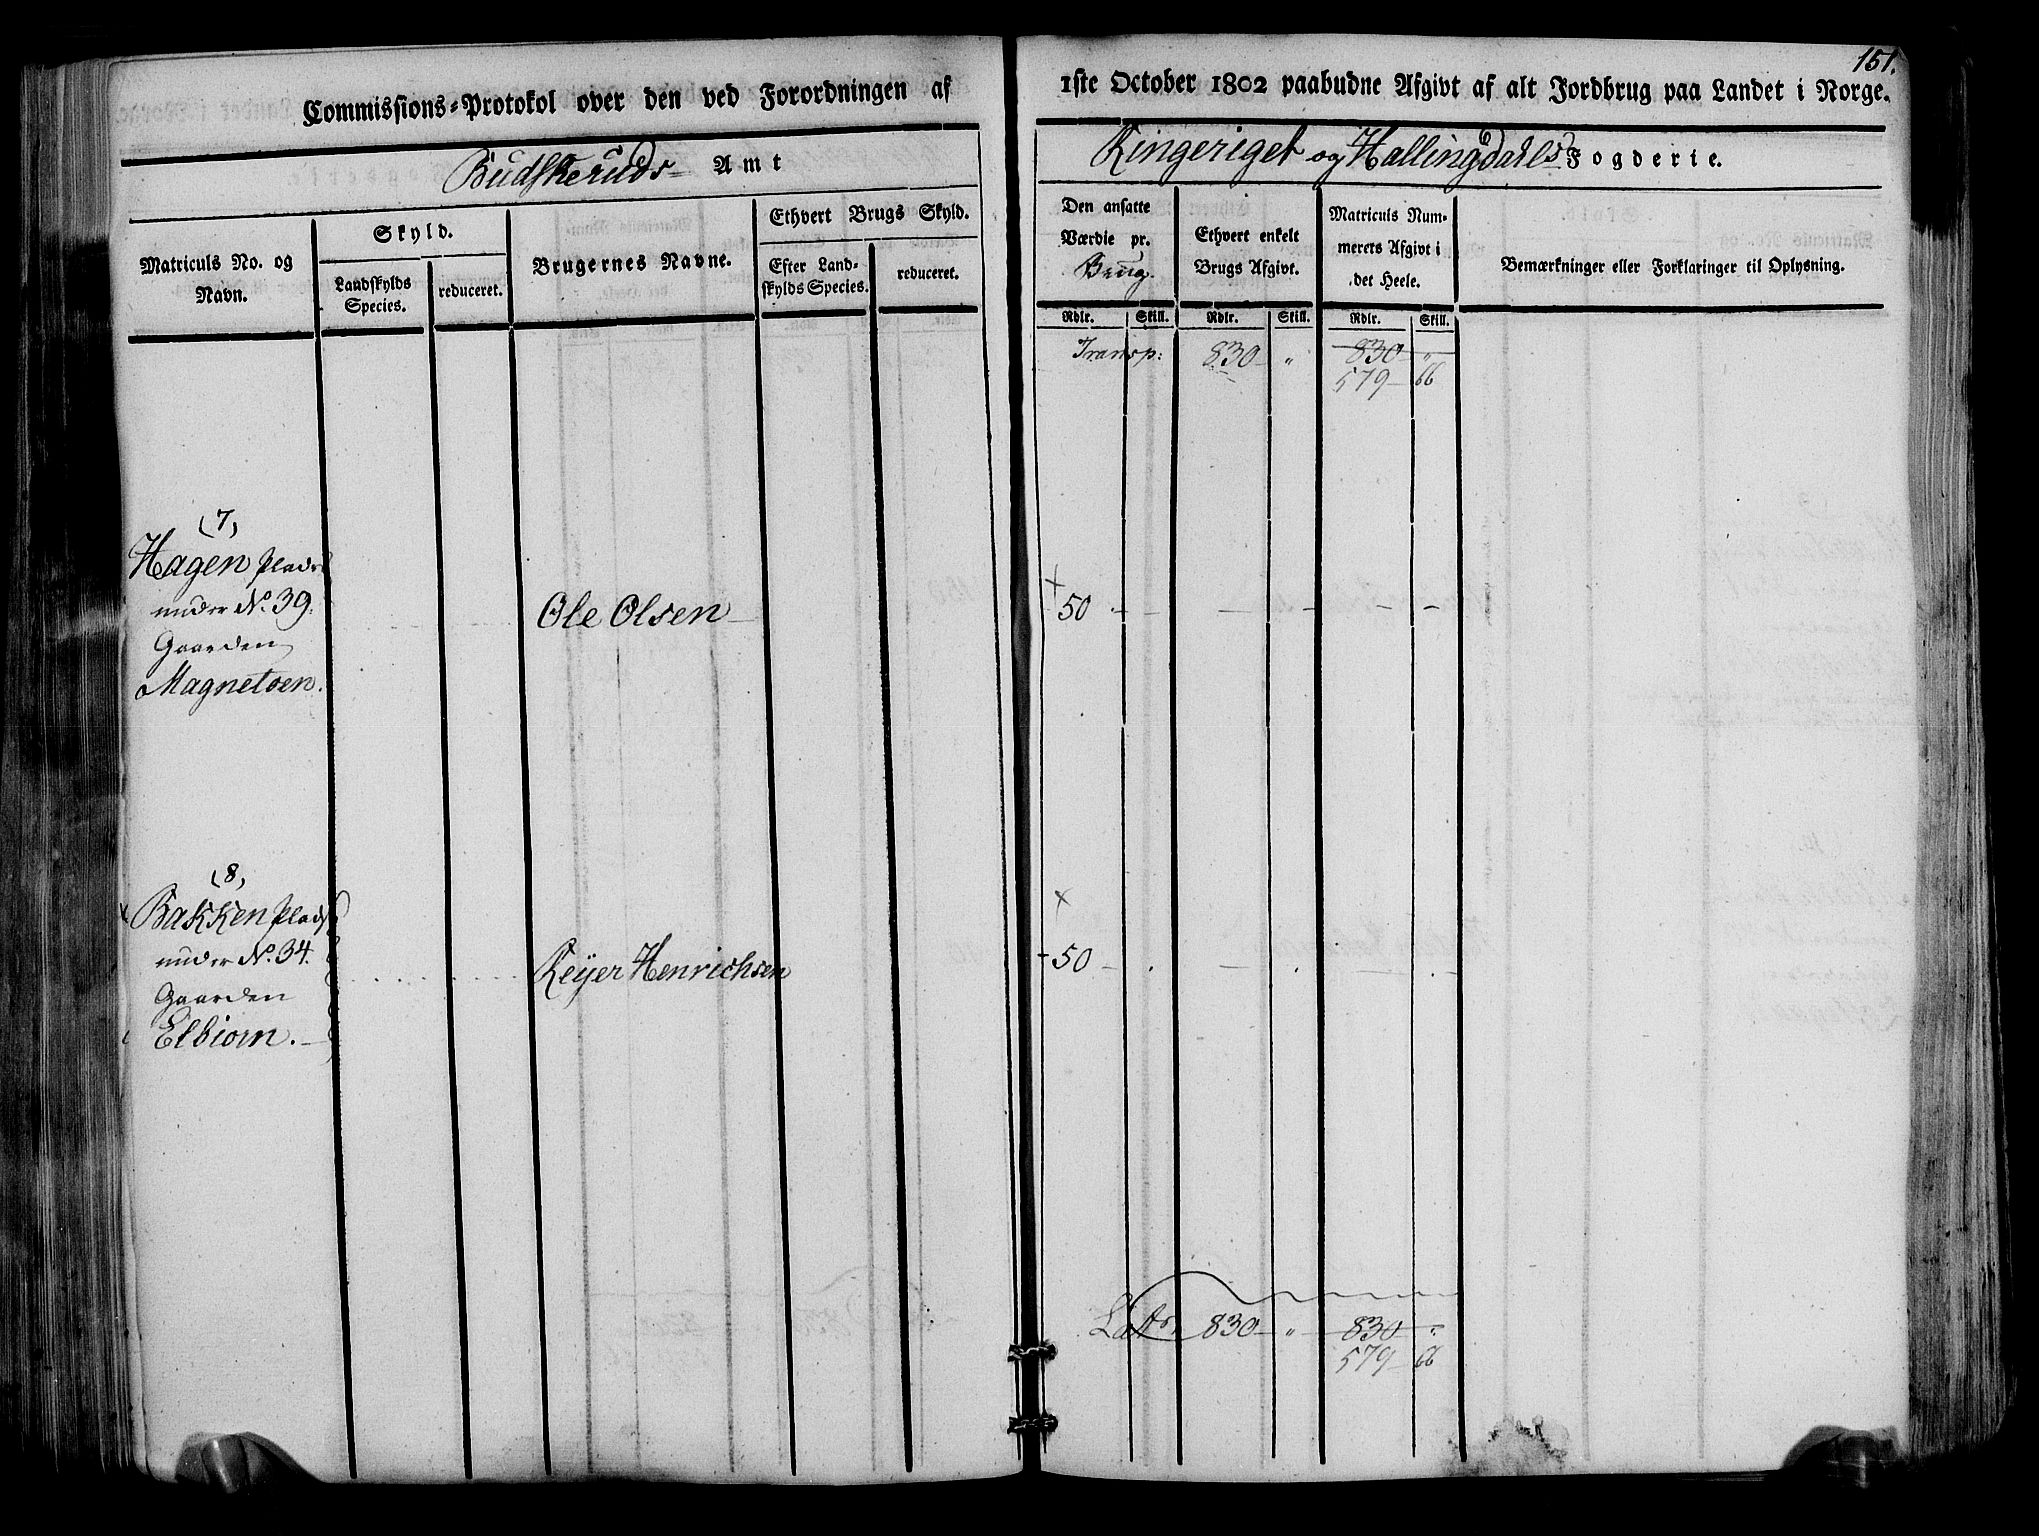 151.
Commissions-Protokol over den ved Forordningen af 1ste October 1802 paabudne Afgivt af alt Jordbrug paa Landet i Norge.
Budskeruds Amt
Ringeriget og Hallingdahls Fogderie.
Matriculs No. og Navn.
Skyld.
Landskylds Species.
reduceret.
Brugernes Navne.
Ethvert Brugs Skyld.
Efter Landskylds Species.
reduceret.
Den ansatte Værdie pr. Brug.
Ethvert enkelt Brugs Afgivt.
Matriculs Nummerets Afgivt i det Heele.
Bemærkninger eller Forklaringer til Oplysning.
Rdlr. Skill. Rdlr. Skill. Rdlr. Skill.
Transp: 830 " 830 "
579 66
(7)
Hagen Plads
under No. 39.
Gaarden
Magnetoen.
Ole Olsen
50
(8)
Bakken Plads
under No. 34.
Gaarden
Elbiorn.
Reÿer Henrichsen
50
Latr. 830 " 830 "
579 66